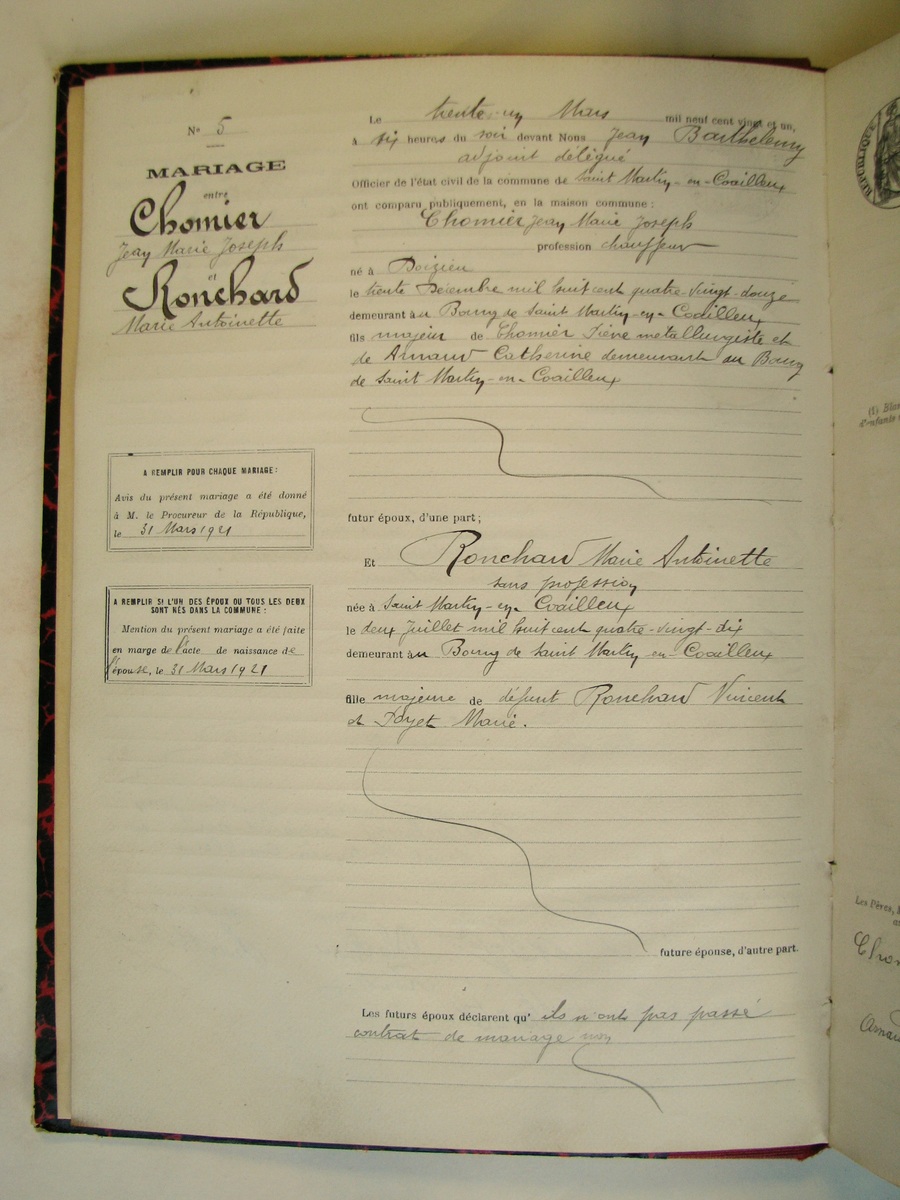 N° 5
MARIAGE
entre
Chomier
Jean Marie Joseph
et
Ronchard
Marie Antoinette
A REMPLIR POUR CHAQUE MARIAGE:
Avis du présent mariage a été donné
à M. le Procureur de la République,
le 31 Mars 1921
A REMPLIR SI L'UN DES ÉPOUX OU TOUS LES DEUX
SONT NÉS DANS LA COMMUNE :
Mention du présent mariage a été faite
en marge de l'acte de naissance de
l'épouse, le 31 Mars 1921
Le trente-un Mars mil neuf cent vingt et un,
à six heures du soir devant Nous Jean Barthelemy
adjoint délégué
Officier de l'état civil de la commune de Saint Martin-en-Coailleux
ont comparu publiquement, en la maison commune :
Chomier Jean Marie Joseph
profession chauffeur
né à Doizieu
le trente Décembre mil huit cent quatre-vingt-douze
demeurant au Bourg de Saint Martin-en-Coailleux
fils majeur de Chomier métallurgiste et
de Arnaud Catherine demeurant au Bourg
de Saint Martin-en-Coailleux
futur époux, d'une part ;
Et Ronchard Marie Antoinette
sans profession
née à Saint Martin-en-Coailleux
le deux Juillet mil huit cent quatre-vingt-dix
demeurant au Bourg de Saint Martin en-Coailleux
fille majeure de défunt Ronchard Vincent
et Marie.
future épouse, d'autre part.
Les futurs époux déclarent qu' ils n'ont pas passé
contrat de mariage
RÉPUBLIQUE
Les Pères,